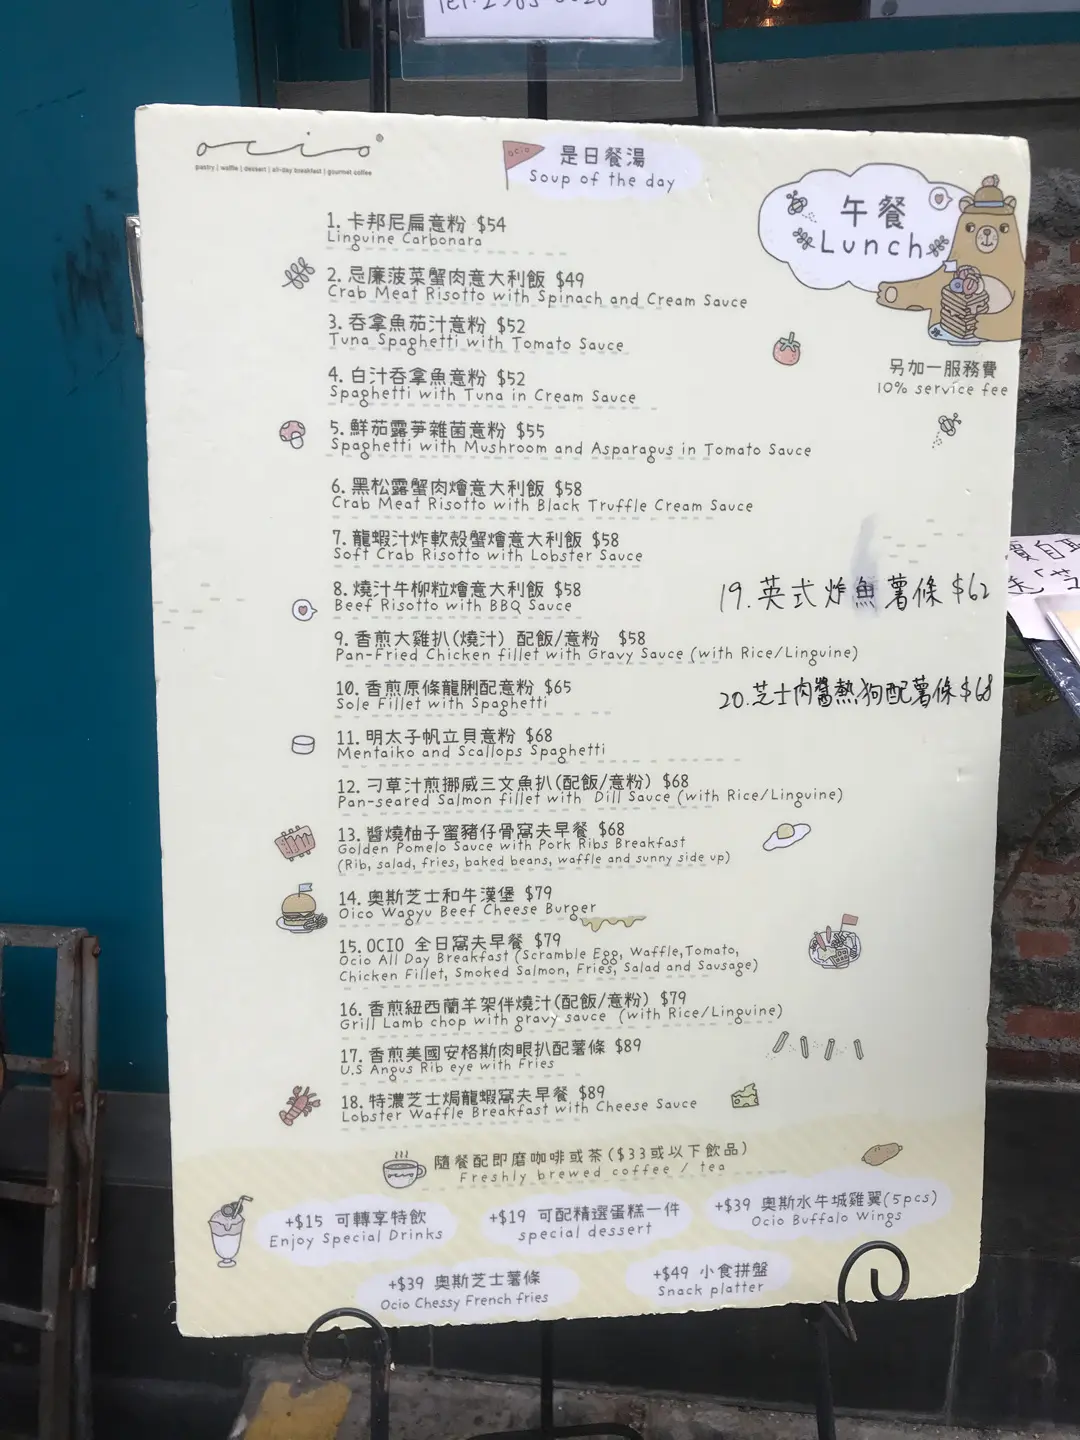 ocio
pastry | waffle | dessert | all-day breakfast | gourmet coffee
ocio
是日餐湯
Soup of the day
午餐
Lunch
另加一服務費
10% service fee
1. 卡邦尼扁意粉 $54
Linguine Carbonara
2. 忌廉菠菜蟹肉意大利飯 $49
Crab Meat Risotto with Spinach and Cream Sauce
3. 吞拿魚茄汁意粉 $52
Tuna Spaghetti with Tomato Sauce
4. 白汁吞拿魚意粉 $52
Spaghetti with Tuna in Cream Sauce
5. 鮮茄露笋雜菌意粉 $55
Spaghetti with Mushroom and Asparagus in Tomato Sauce
6. 黑松露蟹肉燴意大利飯 $58
Crab Meat Risotto with Black Truffle Cream Sauce
7. 龍蝦汁炸軟殼蟹燴意大利飯 $58
Soft Crab Risotto with Lobster Sauce
8. 燒汁牛柳粒燴意大利飯 $58
Beef Risotto with BBQ Sauce
9. 香煎大雞扒(燒汁) 配飯/意粉 $58
Pan-Fried Chicken fillet with Gravy Sauce (with Rice/Linguine)
10. 香煎原條龍脷配意粉 $65
Sole Fillet with Spaghetti
11. 明太子帆立貝意粉 $68
Mentaiko and Scallops Spaghetti
12. 刁草汁煎挪威三文魚扒(配飯/意粉) $68
Pan-seared Salmon fillet with Dill Sauce (with Rice/Linguine)
13. 醬燒柚子蜜豬仔骨窩夫早餐 $68
Golden Pomelo Sauce with Pork Ribs Breakfast
(Rib, salad, fries, baked beans, waffle and sunny side up)
14. 奧斯芝士和牛漢堡 $79
Oico Wagyu Beef Cheese Burger
15. OCIO 全日窩夫早餐 $79
Ocio All Day Breakfast (Scramble Egg, Waffle,Tomato,
Chicken Fillet, Smoked Salmon, Fries, Salad and Sausage)
16. 香煎紐西蘭羊架伴燒汁(配飯/意粉) $79
Grill Lamb chop with gravy sauce (with Rice/Linguine)
17. 香煎美國安格斯肉眼扒配薯條 $89
U.S Angus Rib eye with Fries
18. 特濃芝士焗龍蝦窩夫早餐 $89
Lobster Waffle Breakfast with Cheese Sauce
19. 英式炸魚薯條 $62
20. 芝士肉醬熱狗配薯條 $68
隨餐配即磨咖啡或茶($33或以下飲品)
Freshly brewed coffee / tea
+$15 可轉享特飲
Enjoy Special Drinks
+$19 可配精選蛋糕一件
special dessert
+$39 奧斯水牛城雞翼(5pcs)
Ocio Buffalo Wings
+$39 奧斯芝士薯條
Ocio Chessy French fries
+$49 小食拼盤
Snack platter